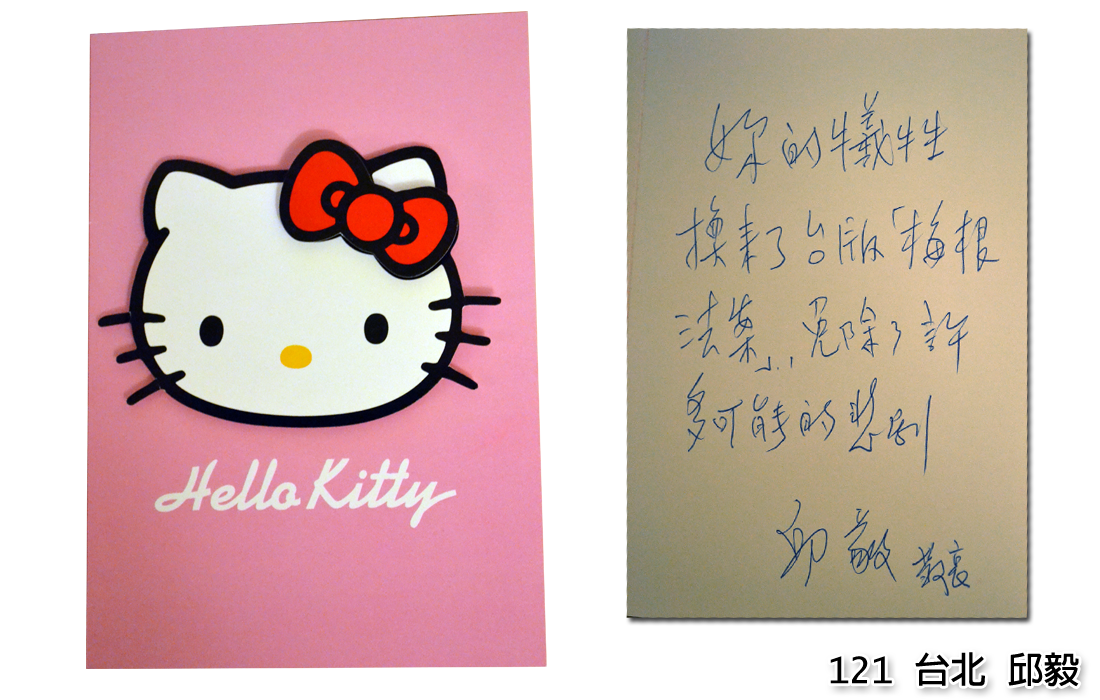 Hello Kitty
妳的犧牲
換來了台版「梅根
法案」，免除了許
多可能的悲劇
邱毅 敬哀
121 台北 邱毅